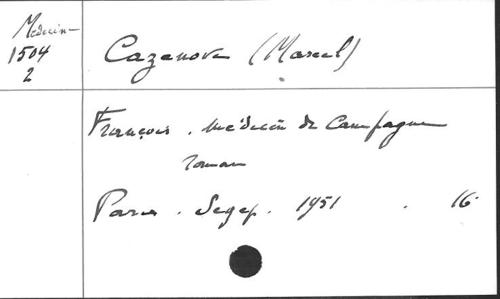 Médecine
1504
2
Cazanova (Marcel)
François. Médecin de Campagne
roman
Paris. Segep. 1951. 16